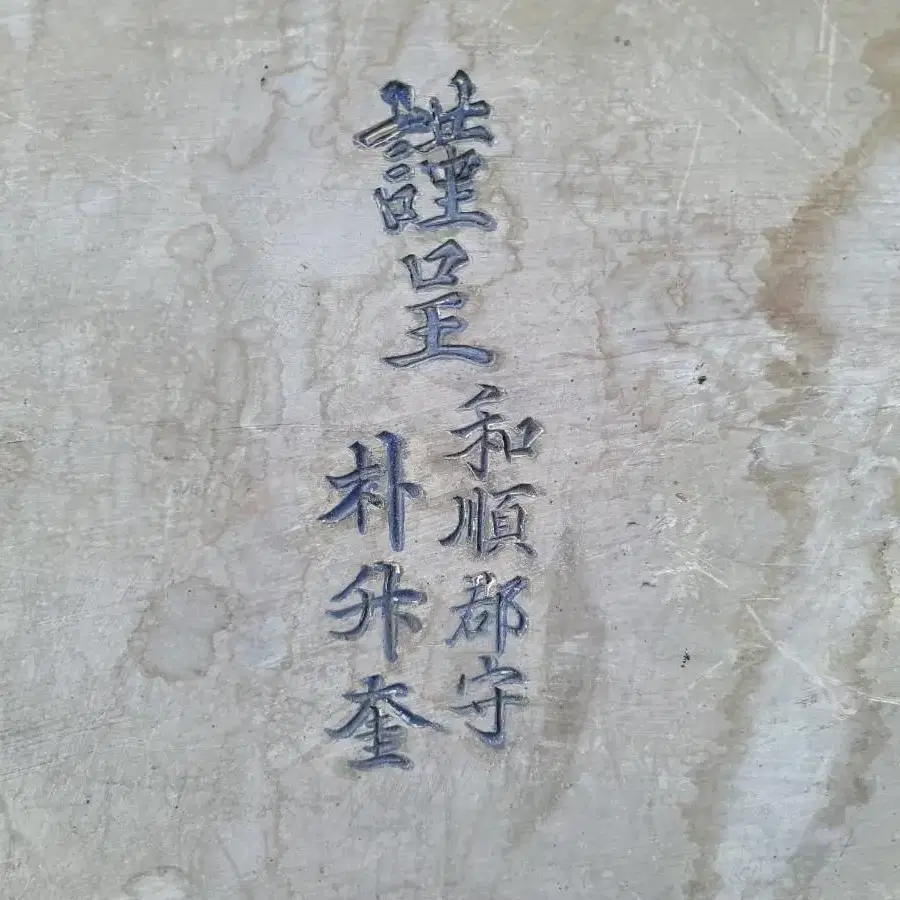 謹呈
和順郡守
朴升奎